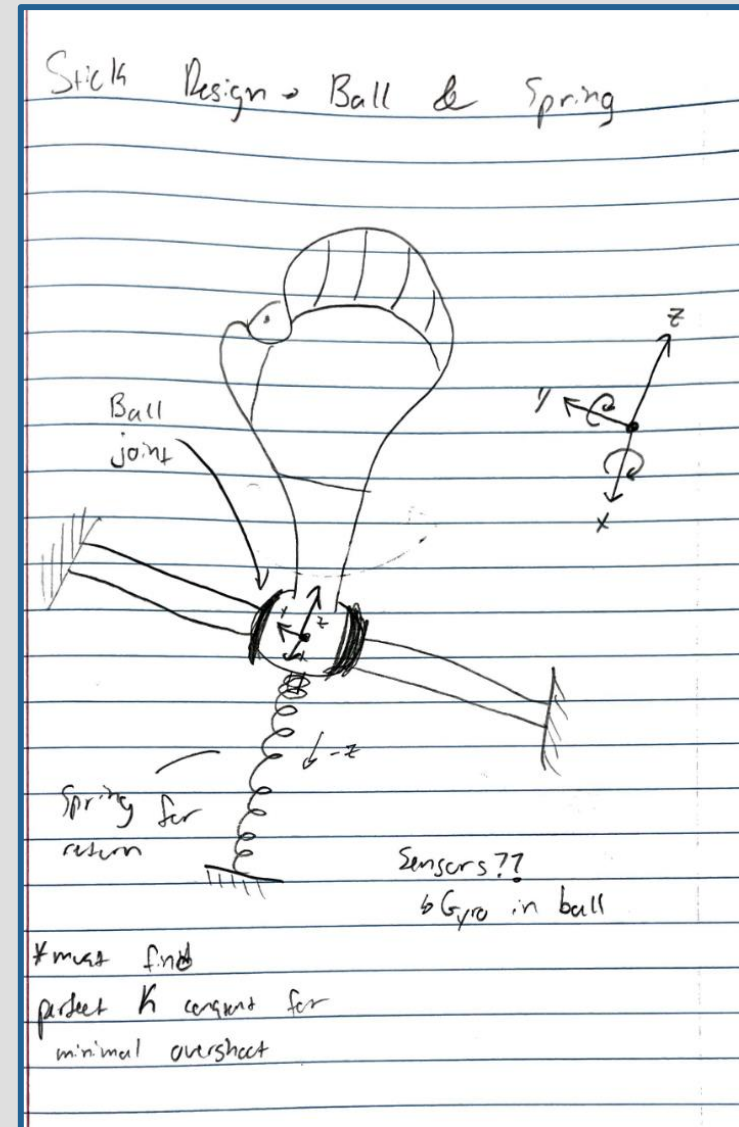 Stick Design → Ball & Spring
Z
y
x
Ball
joint
z
-z
Spring for
return
Sensors??
↳ Gyro in ball
*must find
perfect K constant for
minimal overshoot